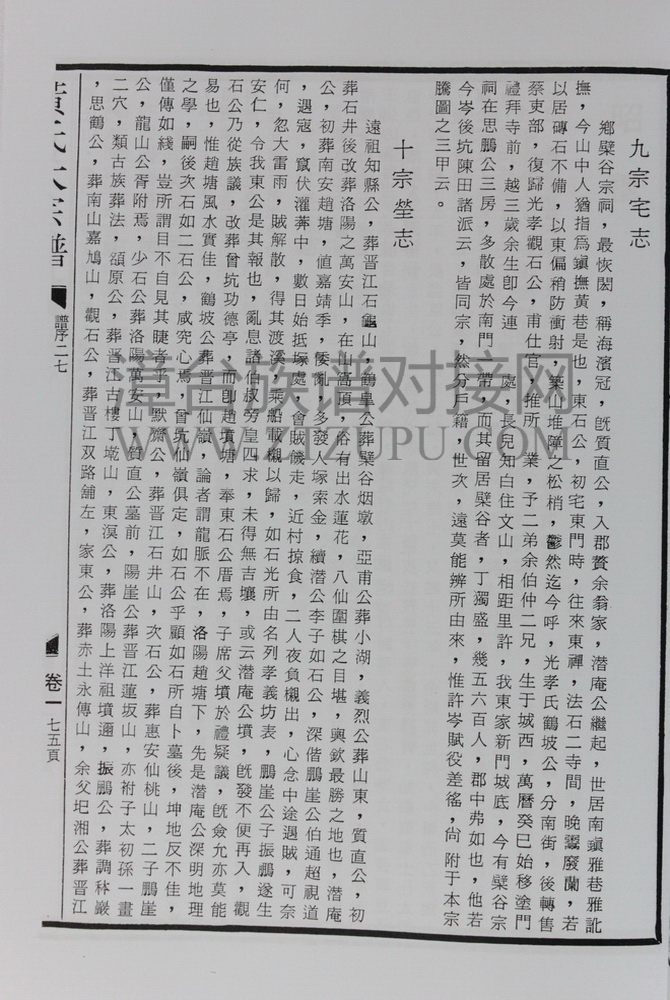 九宗宅志
鄉檗谷宗祠，最恢閎，稱海濱冠，旣質直公，入郡贅余翁家，潜庵公繼起，世居南鎭雅巷雅訛
撫，今山中人猶指爲鎭撫黃巷是也，東石公，初宅東門時，往來東禪，法石二寺間，晚翯廢蘭，若
以居磚石不備，以東偏稍防衝射，築山堆障之松梢，鬱然迄今呼，光孝氏鶴坡公，分南街，後轉售
蔡吏部，復歸光孝觀石公，甫仕官，推所一業，予二弟余伯仲二兄，生于城西，萬曆癸巳始移塗門
禮拜寺前，越三歲余生卽今連　處，長兒知白住文山，相距里許，我東家新門城底，今有檗谷宗
祠在思鵬公三房，多散處於南門一帶，而其留居檗谷者，丁獨盛，幾五六百人，郡中弗如也，他若
今岑後坑陳田諸派云，皆同宗，然分戶籍，世次，遠莫能辨所由來，惟許岑賦役差徭，尙附于本宗
騰圖之三甲云。
十宗塋志
遠祖知縣公，葬晋江石龜山，鶴皐公葬檗谷烟墩，亞甫公葬小湖，義烈公葬山東，質直公，初
葬石井後改葬洛陽之萬安山，在山高頂，俗有出水蓮花，八仙圍棋之目堪，輿欽最勝之地也，潜庵
公，初葬南安趙塘，値嘉靖季，倭亂，多發人塚索金，續潜公李子如石公，深偕鵬崖公伯通超視道
，遇寇，竄伏濯莾中，數日始抵塚處，會賊倦走，近村掠食，二人夜負櫬出，心念中途遇賊，可奈
何，忽大雷雨，賊解散，得其渡溪，乘船載櫬以歸，如石光所由名列孝義坊表，鵬崖公子振鵬遂生
安仁，令我東公是其報也，亂息諸伯叔旁皇四求，未得無吉壤，或云潜庵公墳，旣發不便再入，觀
石公乃從族議，改葬曾坑功德亭，而卽趙墳塘，奉東石公厝焉，子席父墳於禮疑議，旣僉允亦莫能
易也，惟趙塘風水實佳，鶴坡公葬晋江仙嶺，論者謂龍脈不在，洛陽趙塘下，先是潜庵公深明地理
之學，嗣後次石如二石公，咸究心焉，曾坑仙嶺俱定，如石公乎顧如石所自卜墓後，坤地反不佳，
僅傳如綫，豈所謂目不自見其睫者乎，默齋公，葬晋江石井山，次石公，葬惠安仙桃山，二子鵬崖
公，龍山公胥附焉，少石公葬洛陽萬安山，質直公墓前，陽崖公葬晋江蓮坂山，亦祔子太初孫一畫
二穴，類古族葬法，頴原公，葬晋江古樓丁墘山，東溟公，葬洛陽上洋祖墳邇，振鵬公，葬調秝巖
，思鶴公，葬南山嘉鳩山，觀石公，葬晋江双路舖左，家東公，葬赤土永傳山，余父圯湘公葬晋江
黃氏大宗譜
譜序二七
卷一
七五頁
漳台族谱对接网
WWW.ZTZUPU.COM